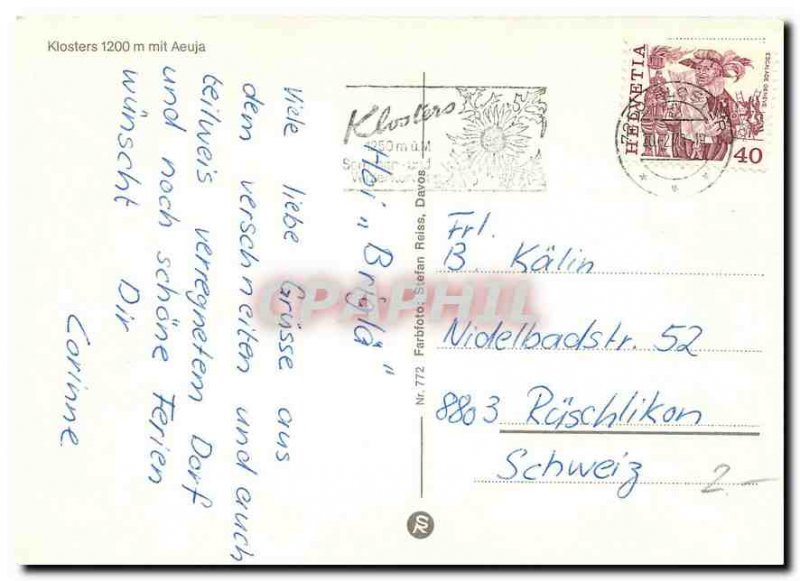 Klosters 1200 m mit Aeuja
Hoi „Briglä"
Viele liebe Grüsse aus
dem verschneiten und auch
teilweis verregnetem Dorf
und noch schöne Ferien
wünscht Dir
Corinne
Klosters
1250 m ü.M
HELVETIA
40
Nr. 772 Farbfoto: Stefan Reiss, Davos
CPAPHIL
Frl.
B. Kälin
Nidelbadstr. 52
8803 Rüschlikon
Schweiz
2.-
SR